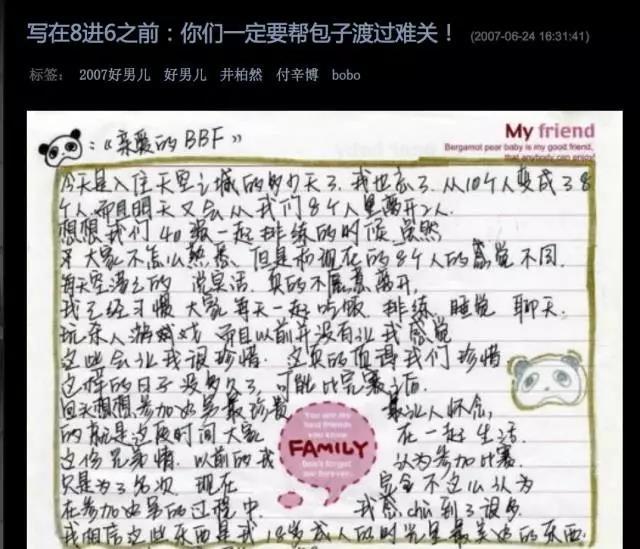 写在8进6之前：你们一定要帮包子渡过难关！ (2007-06-24 16:31:41)
标签： 2007好男儿 好男儿 井柏然 付辛博 bobo
My friend
Bergamot pear baby is my good friend,
that anybody can enjoy!
：《亲爱的BBF》
今天是入住天空之城的多少天了.我也忘了.从10个人变成了8
个人.而且明天又会从我们8个人里离开2人.
想想我们40强一起排练的时候 虽然
大家不怎么熟悉.但是和现在的8个人的感觉不同.
每天空港之的 说实话.真的不愿意离开.
我已经习惯大家每天一起吃饭 排练 睡觉 聊天.
玩杀人游戏 而且以前并没有让我感觉
这些会让我很珍惜. 这真的值得我们珍惜
这样的日子没多久了.可能比完赛之后.
回头想想.参加 最珍贵 最让人怀念,
的就是这段时间大家 在一起生活.
You are my best friends
FAMILY
don't forget
这份兄弟情.以前的我 认为参加比赛.
只是为了名次 现在 完全不这么认为
在参加 的过程中. 我感chu到了很多.
我相信这些东西是我18岁成人的时光里最美好的东西.